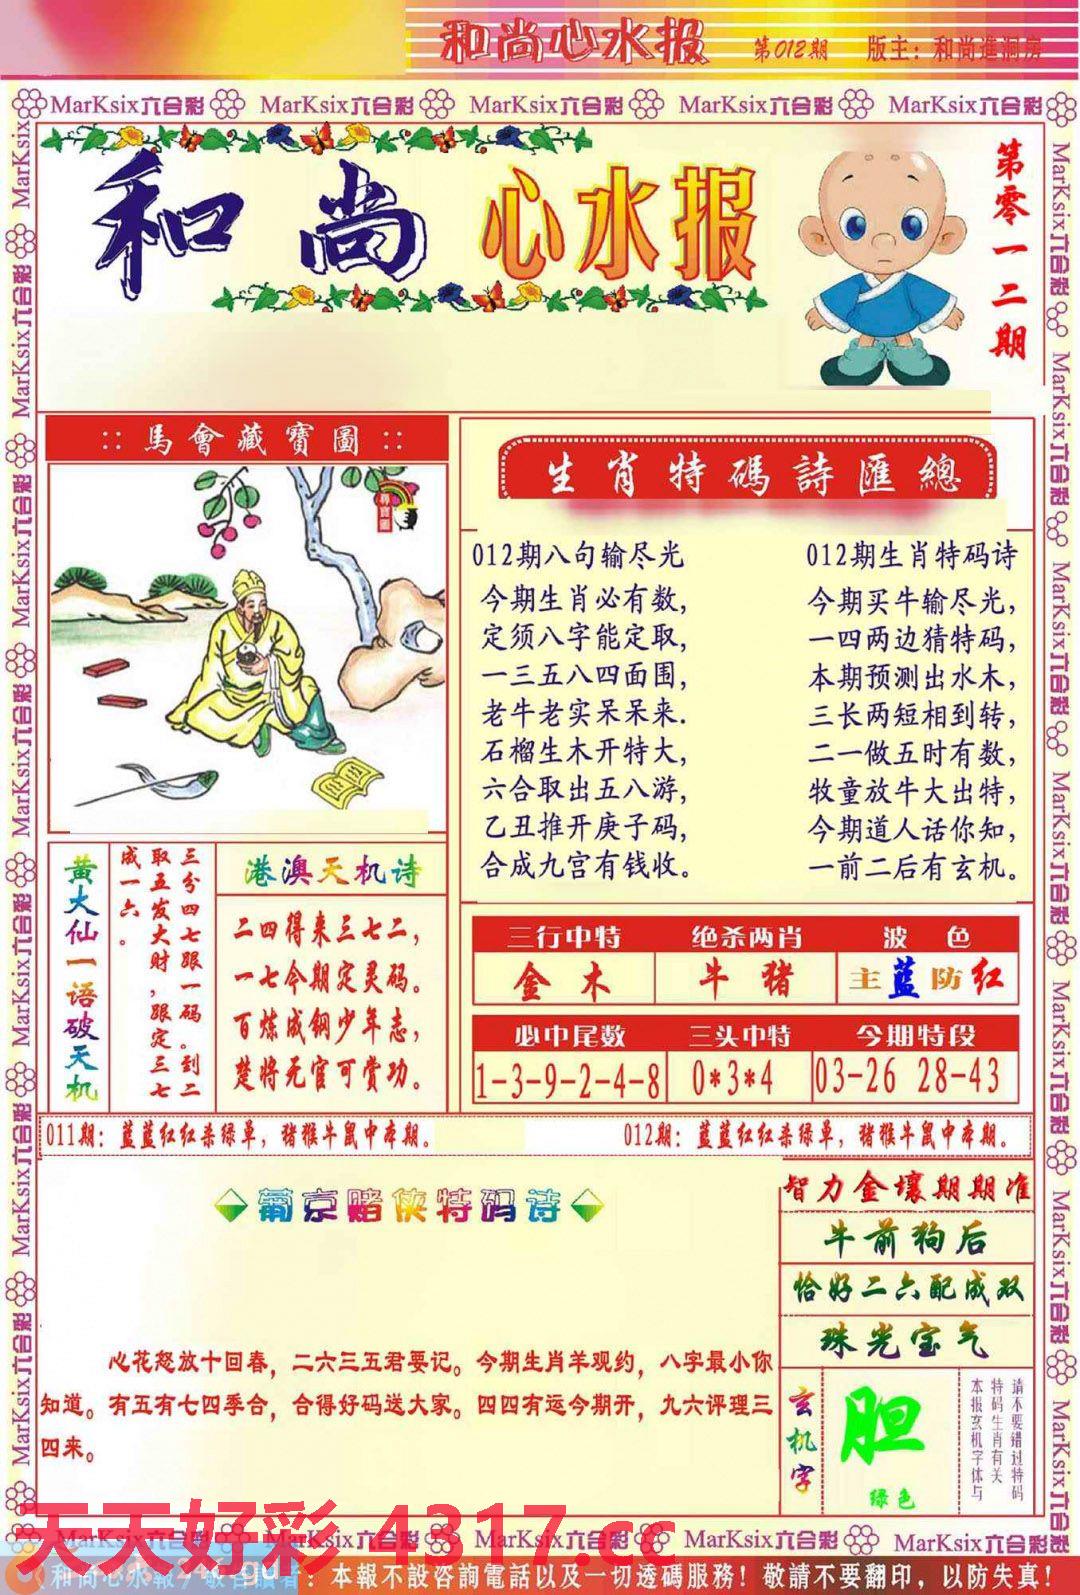 和尚心水报 第012期 版主：和尚進洞房
MarKsix六合彩 MarKsix六合彩 MarKsix六合彩 MarKsix六合彩 MarKsix六合彩
和尚心水报
第零一二期
::馬會藏寶圖::
尋寶圖
生肖特碼詩匯總
012期八句输尽光
今期生肖必有数,
定须八字能定取,
一三五八四面围,
老牛老实呆呆来.
石榴生木开特大,
六合取出五八游,
乙丑推开庚子码,
合成九宫有钱收。
012期生肖特码诗
今期买牛输尽光,
一四两边猜特码,
本期预测出水木,
三长两短相到转,
二一做五时有数,
牧童放牛大出特,
今期道人话你知,
一前二后有玄机。
黄大仙一语破天机
三分四七跟一码。到二
取五发大财,跟定三七
成一六。
港澳天机诗
二四得来三七二,
一七今期定灵码。
百炼成钢少年志,
楚将无官可赏功。
三行中特 绝杀两肖 波色
金木 牛猪 主蓝防红
必中尾数 三头中特 今期特段
1-3-9-2-4-8 0*3*4 03-26 28-43
011期：蓝蓝红红杀绿单，猪猴牛鼠中本期。 012期：蓝蓝红红杀绿单，猪猴牛鼠中本期。
葡京赌侠特码诗
心花怒放十回春，二六三五君要记。今期生肖羊观约，八字最小你
知道。有五有七四季合，合得好码送大家。四四有运今期开，九六评理三
四来。
智力金壤期期准
牛前狗后
恰好二六配成双
珠光宝气
玄机字
胆
绿色
请不要错过特码
特码生肖有关
本报玄机字体与
天天好彩 4317.cc
MarKsix六合彩 MarKsix六合彩 MarKsix六合彩 MarKsix六合彩
和尚心水報敬告讀者：本報不設咨詢電話以及一切透碼服務！敬請不要翻印，以防失真！